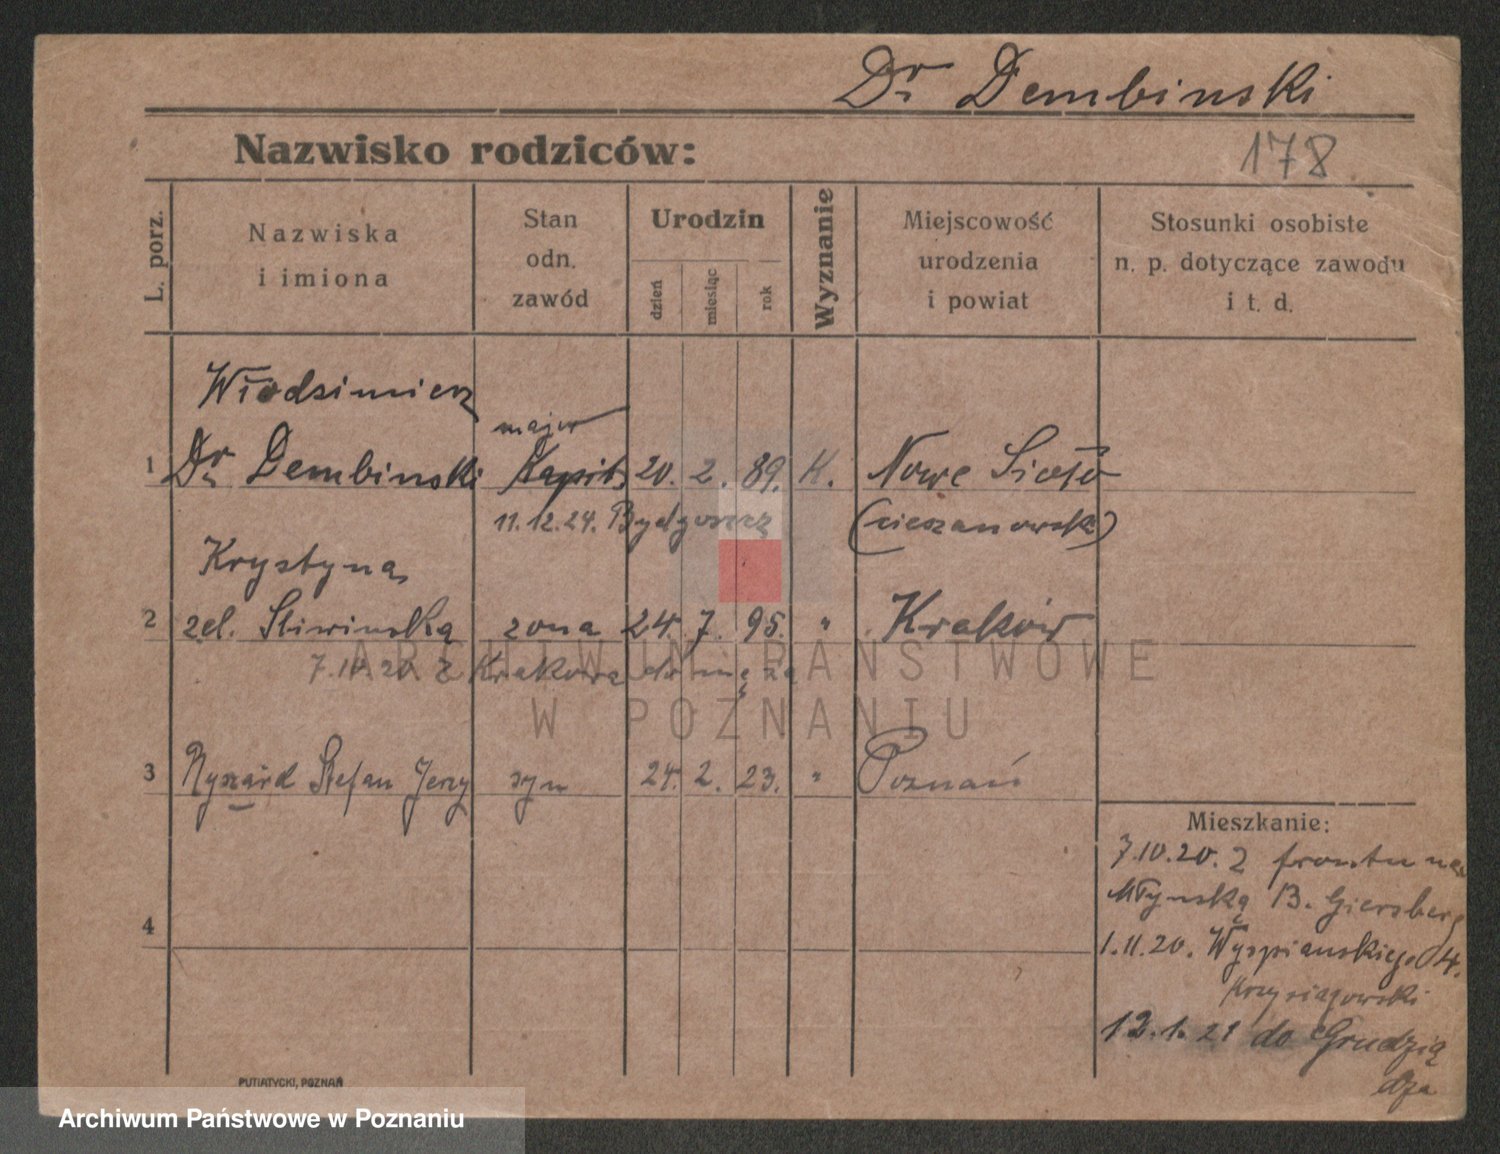 Dr Dembinski
Nazwisko rodziców:
178
L. porz.
Nazwiska
i imiona
Stan
odn.
zawód
Urodzin
dzień
miesiąc
rok
Wyznanie
Miejscowość
urodzenia
i powiat
Stosunki osobiste
n. p. dotyczące zawodu
i t. d.
Włodzimierz
major
1 Dr Dembinski Kapit. 20. 2. 89. K. Nowe Sioło
11.12.24. Bydgoszcz (cieszanowsk)
Krystyna
2 zel. Sliwinska zona 24. 7. 95. " Kraków
7.10.20 z Krakowa do męża
ARCHIWUM PAŃSTWOWE
W POZNANIU
3 Ryszard Stefan Jerzy syn 24. 2. 23. " Poznań
Mieszkanie:
7.10.20. z frontu na
Młynską B. Giersberg
4
1.11.20. Wyspianskiego 4.
12.1.21 do Grudzią
dza
PUTIATYCKI, POZNAŃ
Archiwum Państwowe w Poznaniu